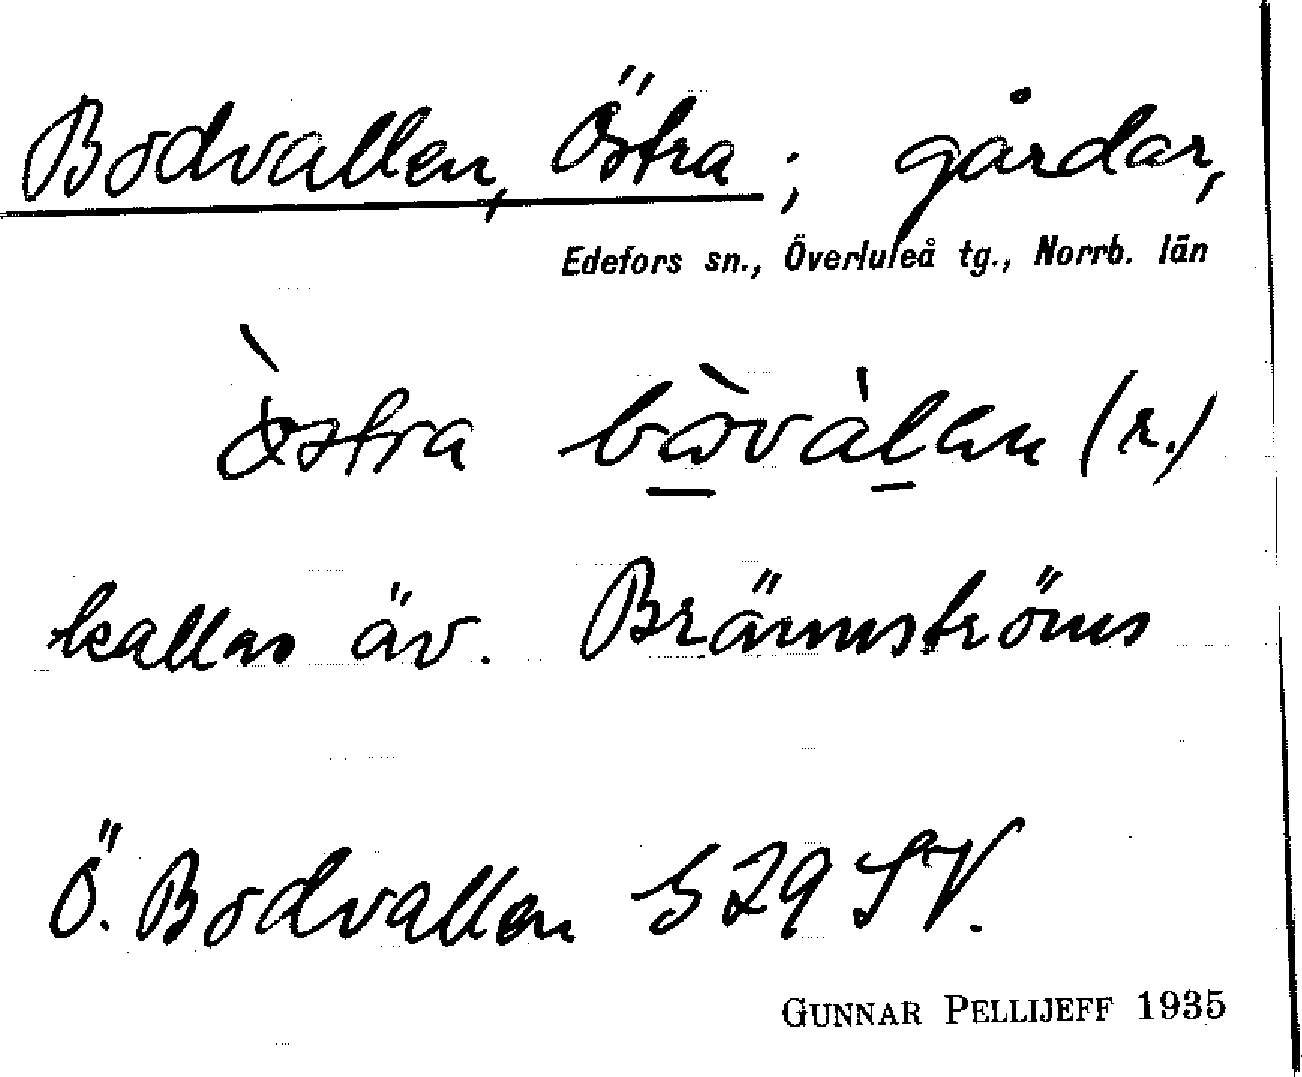 Bodvallen, Östra ; gårdar,
Edefors sn., Överluleå tg., Norrb. län
östra bὼvàlan (r.)
kallas äv. Brännströms
Ö. Bodvallen S 29 SV.
GUNNAR PELLIJEFF 1935